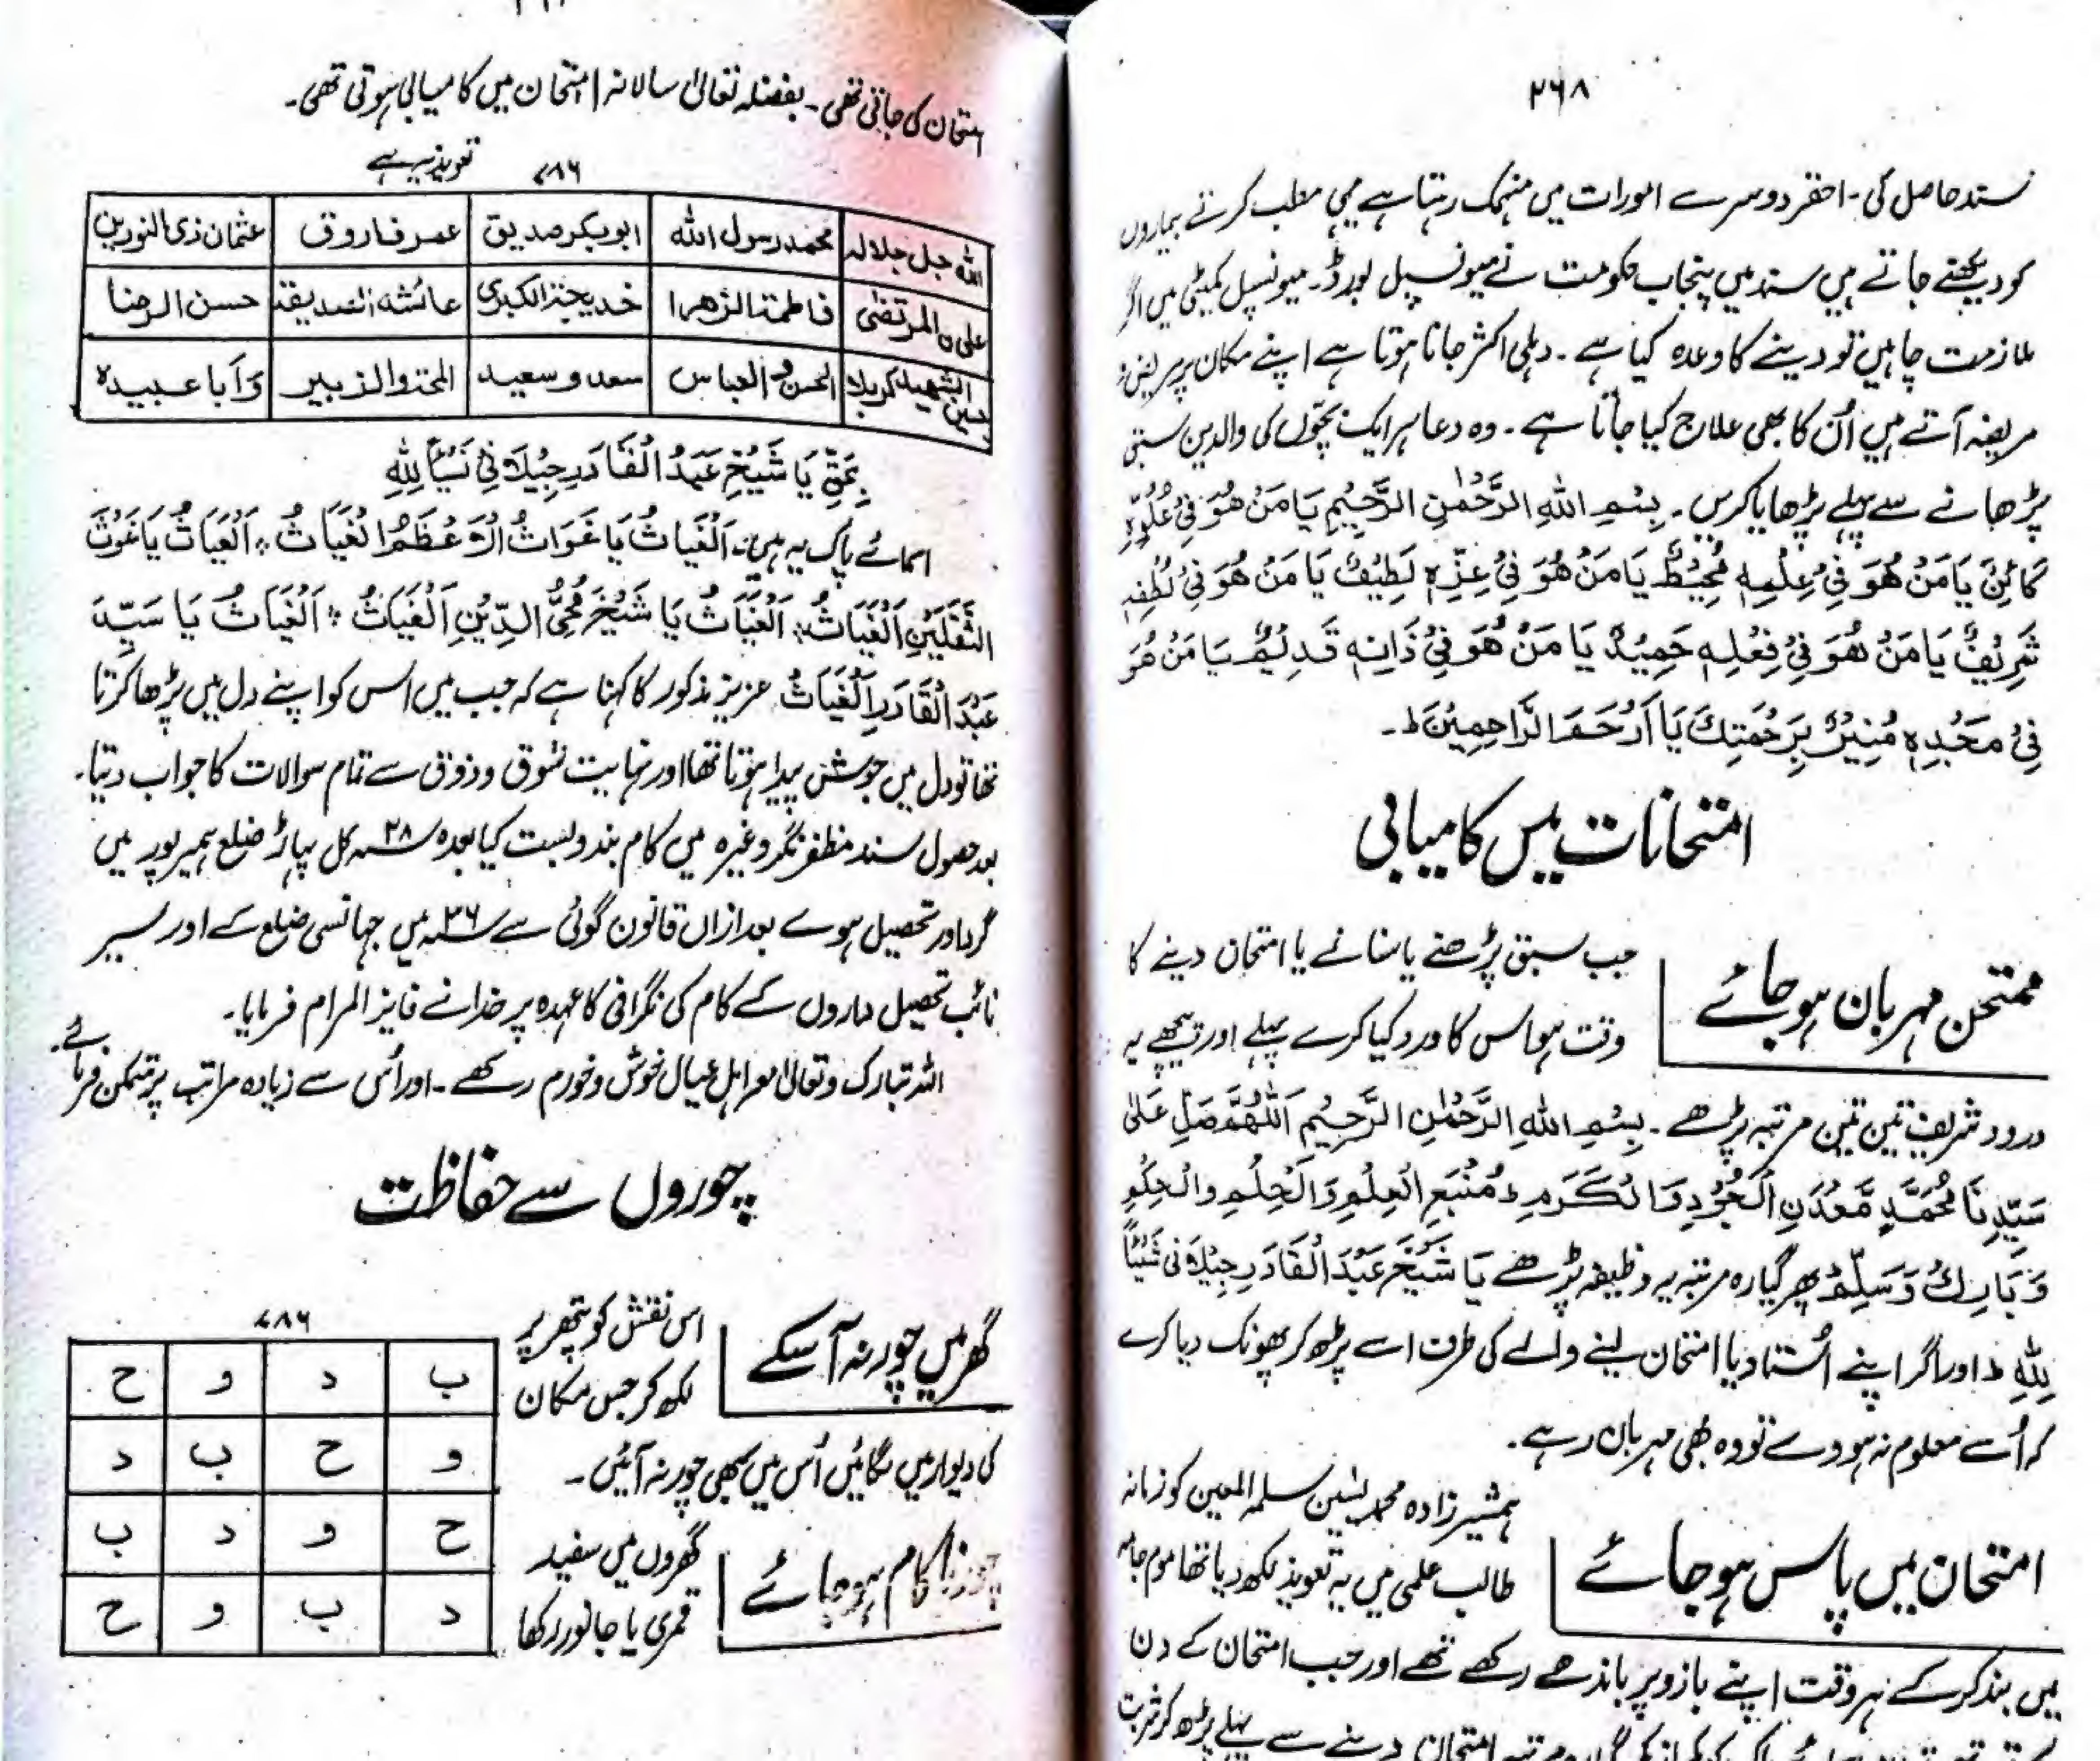 ۲۶۸
سند حاصل کی۔ احقر دوسرے امورات میں منہمک رہتا ہے مطب کرتے بیماروں
کو دیکھنے جاتے ہیں سند میں پنجاب حکومت نے میونسپل بورڈ۔ میونسپل کمیٹی میں اگر
ملازمت چاہیں تو دینے کا وعدہ کیا ہے۔ دہلی اکثر جانا ہوتا ہے اپنے مکان پر مریض و
مریضہ آتے ہیں اُن کا بھی علاج کیا جاتا ہے۔ وہ دعا ہر ایک بچّوں کی والدین سبق
پڑھانے سے پہلے پڑھایا کریں۔ بِسْمِ اللهِ الرَّحْمٰنِ الرَّحِيْمِ يَا مَنْ هُوَ فِيْ عُلُوِّهٖ
كَائِنٌ يَا مَنْ هُوَ فِيْ عِلْمِهٖ مُحِيْطٌ يَا مَنْ هُوَ فِيْ عِزِّهٖ لَطِيْفٌ يَا مَنْ هُوَ فِيْ لُطْفِهٖ
شَرِيْفٌ يَا مَنْ هُوَ فِيْ فِعْلِهٖ حَمِيْدٌ يَا مَنْ هُوَ فِيْ ذَاتِهٖ قَدِيْمٌ يَا مَنْ هُوَ
فِيْ مَجْدِهٖ مُنِيْرٌ بِرَحْمَتِكَ يَا اَرْحَمَ الرَّاحِمِيْنَ ط۔
امتحانات میں کامیابی
ممتحن مہربان ہو جائے
جب سبق پڑھنے یا سنانے یا امتحان دینے کا
وقت ہو اس کا ورد کیا کرے پہلے اور پیچھے یہ
درود شریف تین تین مرتبہ پڑھے۔ بِسْمِ اللهِ الرَّحْمٰنِ الرَّحِيْمِ اَللّٰهُمَّ صَلِّ عَلٰی
سَيِّدِنَا مُحَمَّدٍ مَّعْدَنِ الْجُوْدِ وَالْكَرَمِ وَ مُنْبَعِ الْعِلْمِ وَالْحِلْمِ وَالْحِكْمِ
وَبَارِكْ وَسَلِّمْ پھر گیارہ مرتبہ یہ وظیفہ پڑھے يَا شَيْخَ عَبْدَ الْقَادَرِ جِيْلَانِیْ شَيْئًا
لِلّٰهِ ط اور اگر اپنے اُستاد یا امتحان لینے والے کی طرف اسے پڑھ کر پھونک دیا کرے
کہ اُسے معلوم نہ ہووے تو وہ بھی مہربان رہے۔
امتحان میں پاس ہو جائے
ہمشیر زادہ محمد یٰسین سلمہ المعین کو زمانہ
طالب علمی میں یہ تعویذ لکھ دیا تھا موم جامہ
میں بند کرکے ہر وقت اپنے بازو پر باندھے رکھے تھے اور جب امتحان کے دن
امتحان دینے سے پہلے پڑھ کر شربت
امتحان کی جاتی تھی۔ بفضلہ تعالیٰ سالانہ امتحان میں کامیابی ہوتی تھی۔
۷۸۶ تعویذ یہ ہے
اللہ جل جلالہ محمد رسول اللہ ابوبکر صدیق عمر فاروق عثمان ذی النورین
علی ن المرتضیٰ فاطمۃ الزھرا خدیجۃ الکبریٰ عائشہ الصدیقہ حسن الرضا
حسین الشہید کربلا العباس سعد و سعید والزبیر وَاَبا عبیدہ
بِحَقِّ يَا شَيْخِ عَبْدُ الْقَادَرِ جِيْلَانِیْ شَيْأً لِلّٰهِ
اسمائے پاک یہ ہیں۔ اَلْغَيَاثُ يَا غَوَاثُ الْاَعْظَمُ الْغَيَاثُ ۔ اَلْغَيَاثُ يَا غَوْثَ
الثَّقَلَيْنِ اَلْغَيَاثُ ۔ اَلْغَيَاثُ يَا شَيْخَ مُحِیُّ الدِّيْنِ اَلْغَيَاثُ ۔ اَلْغَيَاثُ يَا سَيِّدَ
عَبْدَ الْقَادَرِ اَلْغَيَاثُ عزیز مذکور کا کہنا ہے کہ جب میں اس کو اپنے دل میں پڑھا کرتا
تھا تو دل میں جوش پیدا ہوتا تھا اور نہایت شوق و ذوق سے تمام سوالات کا جواب دیتا۔
بعد حصول سند مظفر نگر وغیرہ میں کام بندوبست کیا بعدہ ۲۸ سنہ کل پہاڑ ضلع ہمیر پور میں
گرداور تحصیل ہوے بعد ازاں قانون گوئی سے ۳۶ سنہ میں جہانسی ضلع کے اورسیر
نائب تحصیل داروں کے کام کی نگرانی کا عہدہ پر خدا نے فائز المرام فرمایا۔
اللہ تبارک و تعالیٰ معہ اہل عیال خوش و خورم رکھے۔ اور اُس سے زیادہ مراتب پر متمکن فرمائے۔
چوروں سے حفاظت
گھر میں چور نہ آسکے
اس نقش کو پتھر پر
لکھ کر جس مکان
کی دیوار میں لگائیں اُس میں کبھی چور نہ آئیں۔
۷۸۶
ب د و ح
و ح ب د
ح و د ب
د ب و ح
چور ناکام ہو جائے
گھروں میں سفید
قمری یا جانور رکھا